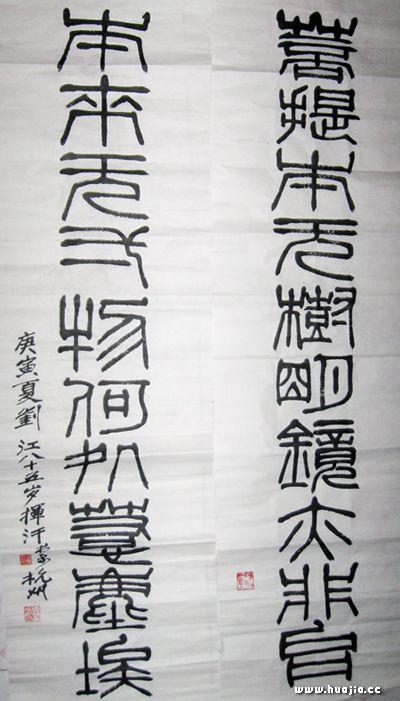 菩提本无樹明鏡亦非台
本來无弌物何処惹塵埃
庚寅夏劉江八十五岁揮汗杭州
www.huajia.cc